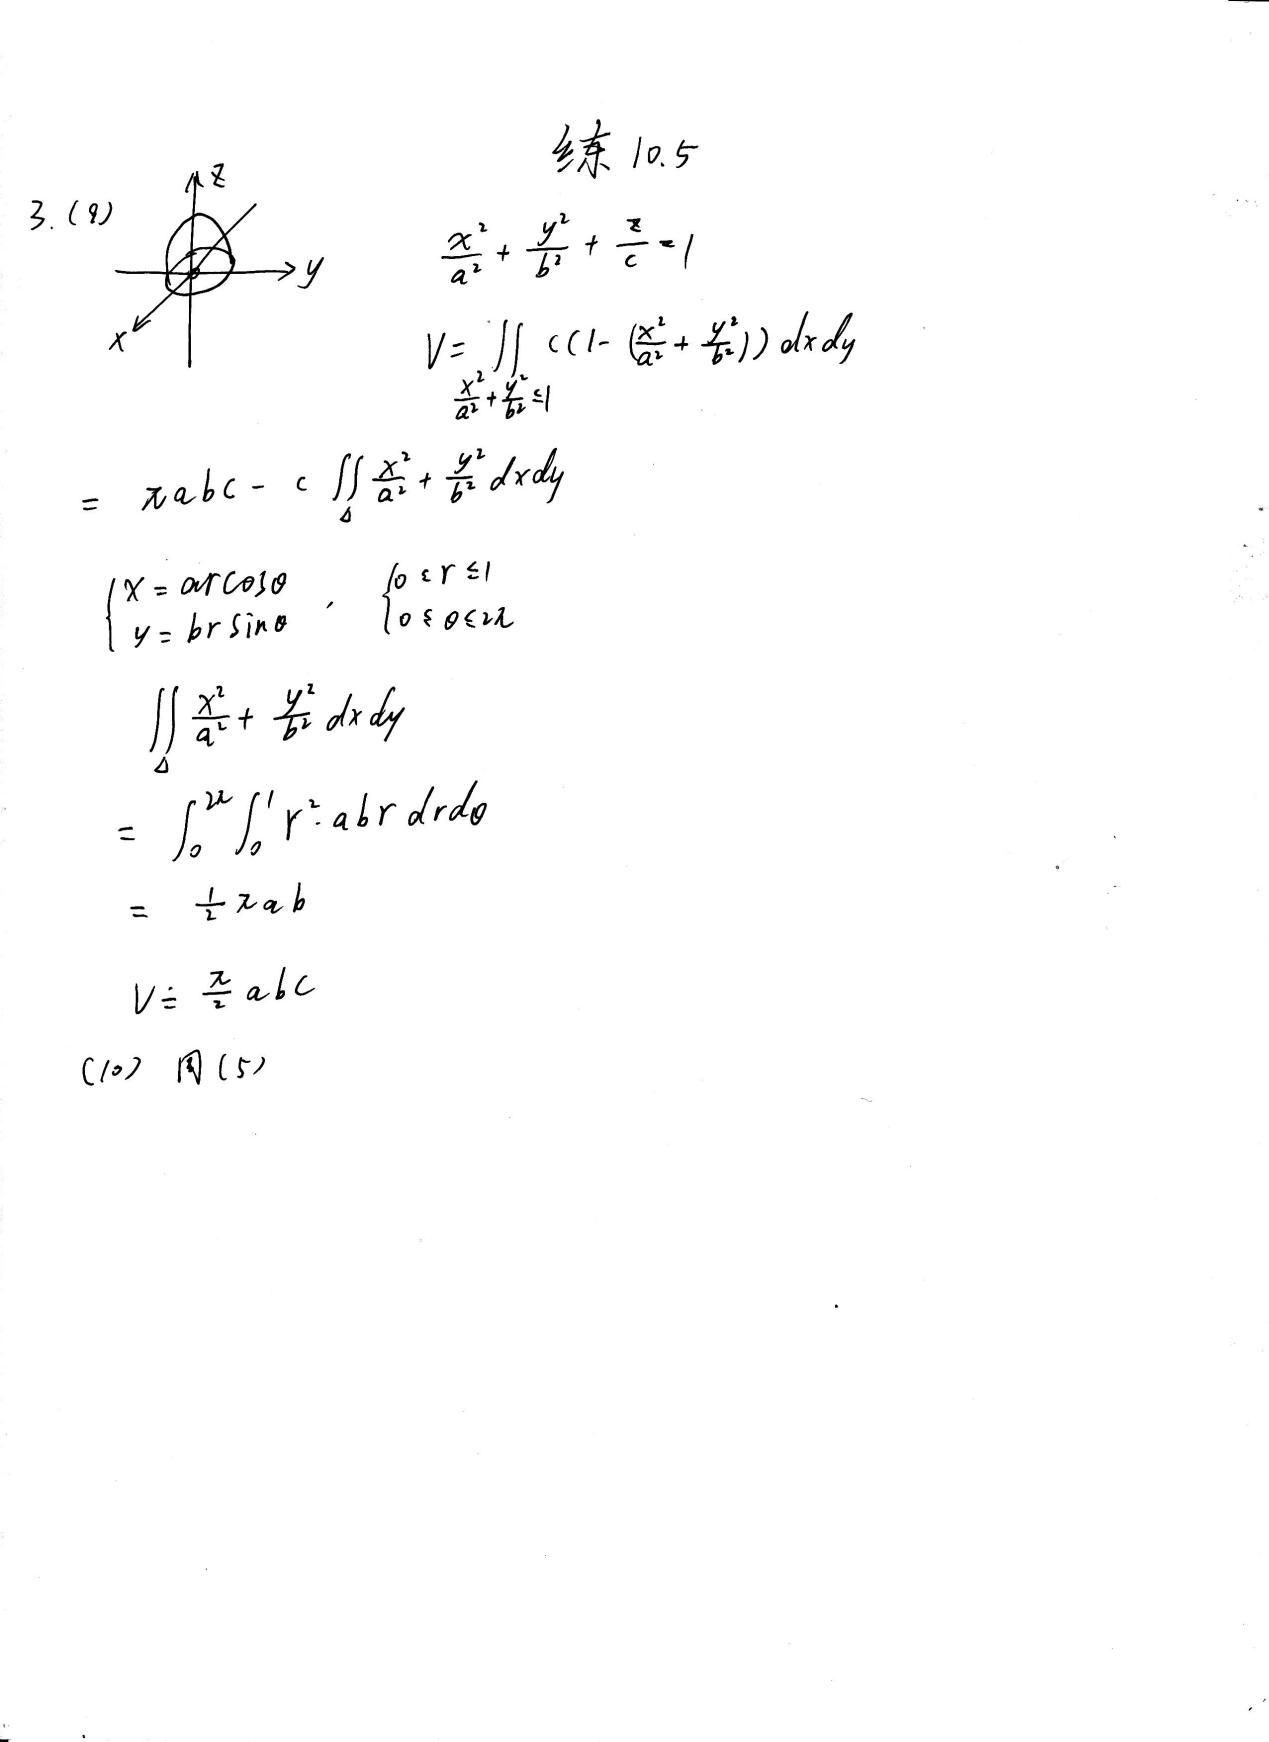 练 10.5
3. (9)
z
y
x
x²/a² + y²/b² + z/c = 1
V = ∬ c(1 - (x²/a² + y²/b²)) dxdy
x²/a² + y²/b² ≤ 1
= πabc - c ∬_Δ x²/a² + y²/b² dxdy
{ x = arcosθ , { 0 ≤ r ≤ 1
y = brsinθ 0 ≤ θ ≤ 2π
∬_Δ x²/a² + y²/b² dxdy
= ∫₀^2π ∫₀^1 r² · abr drdθ
= 1/2 πab
V = π/2 abc
(10) 同(5)